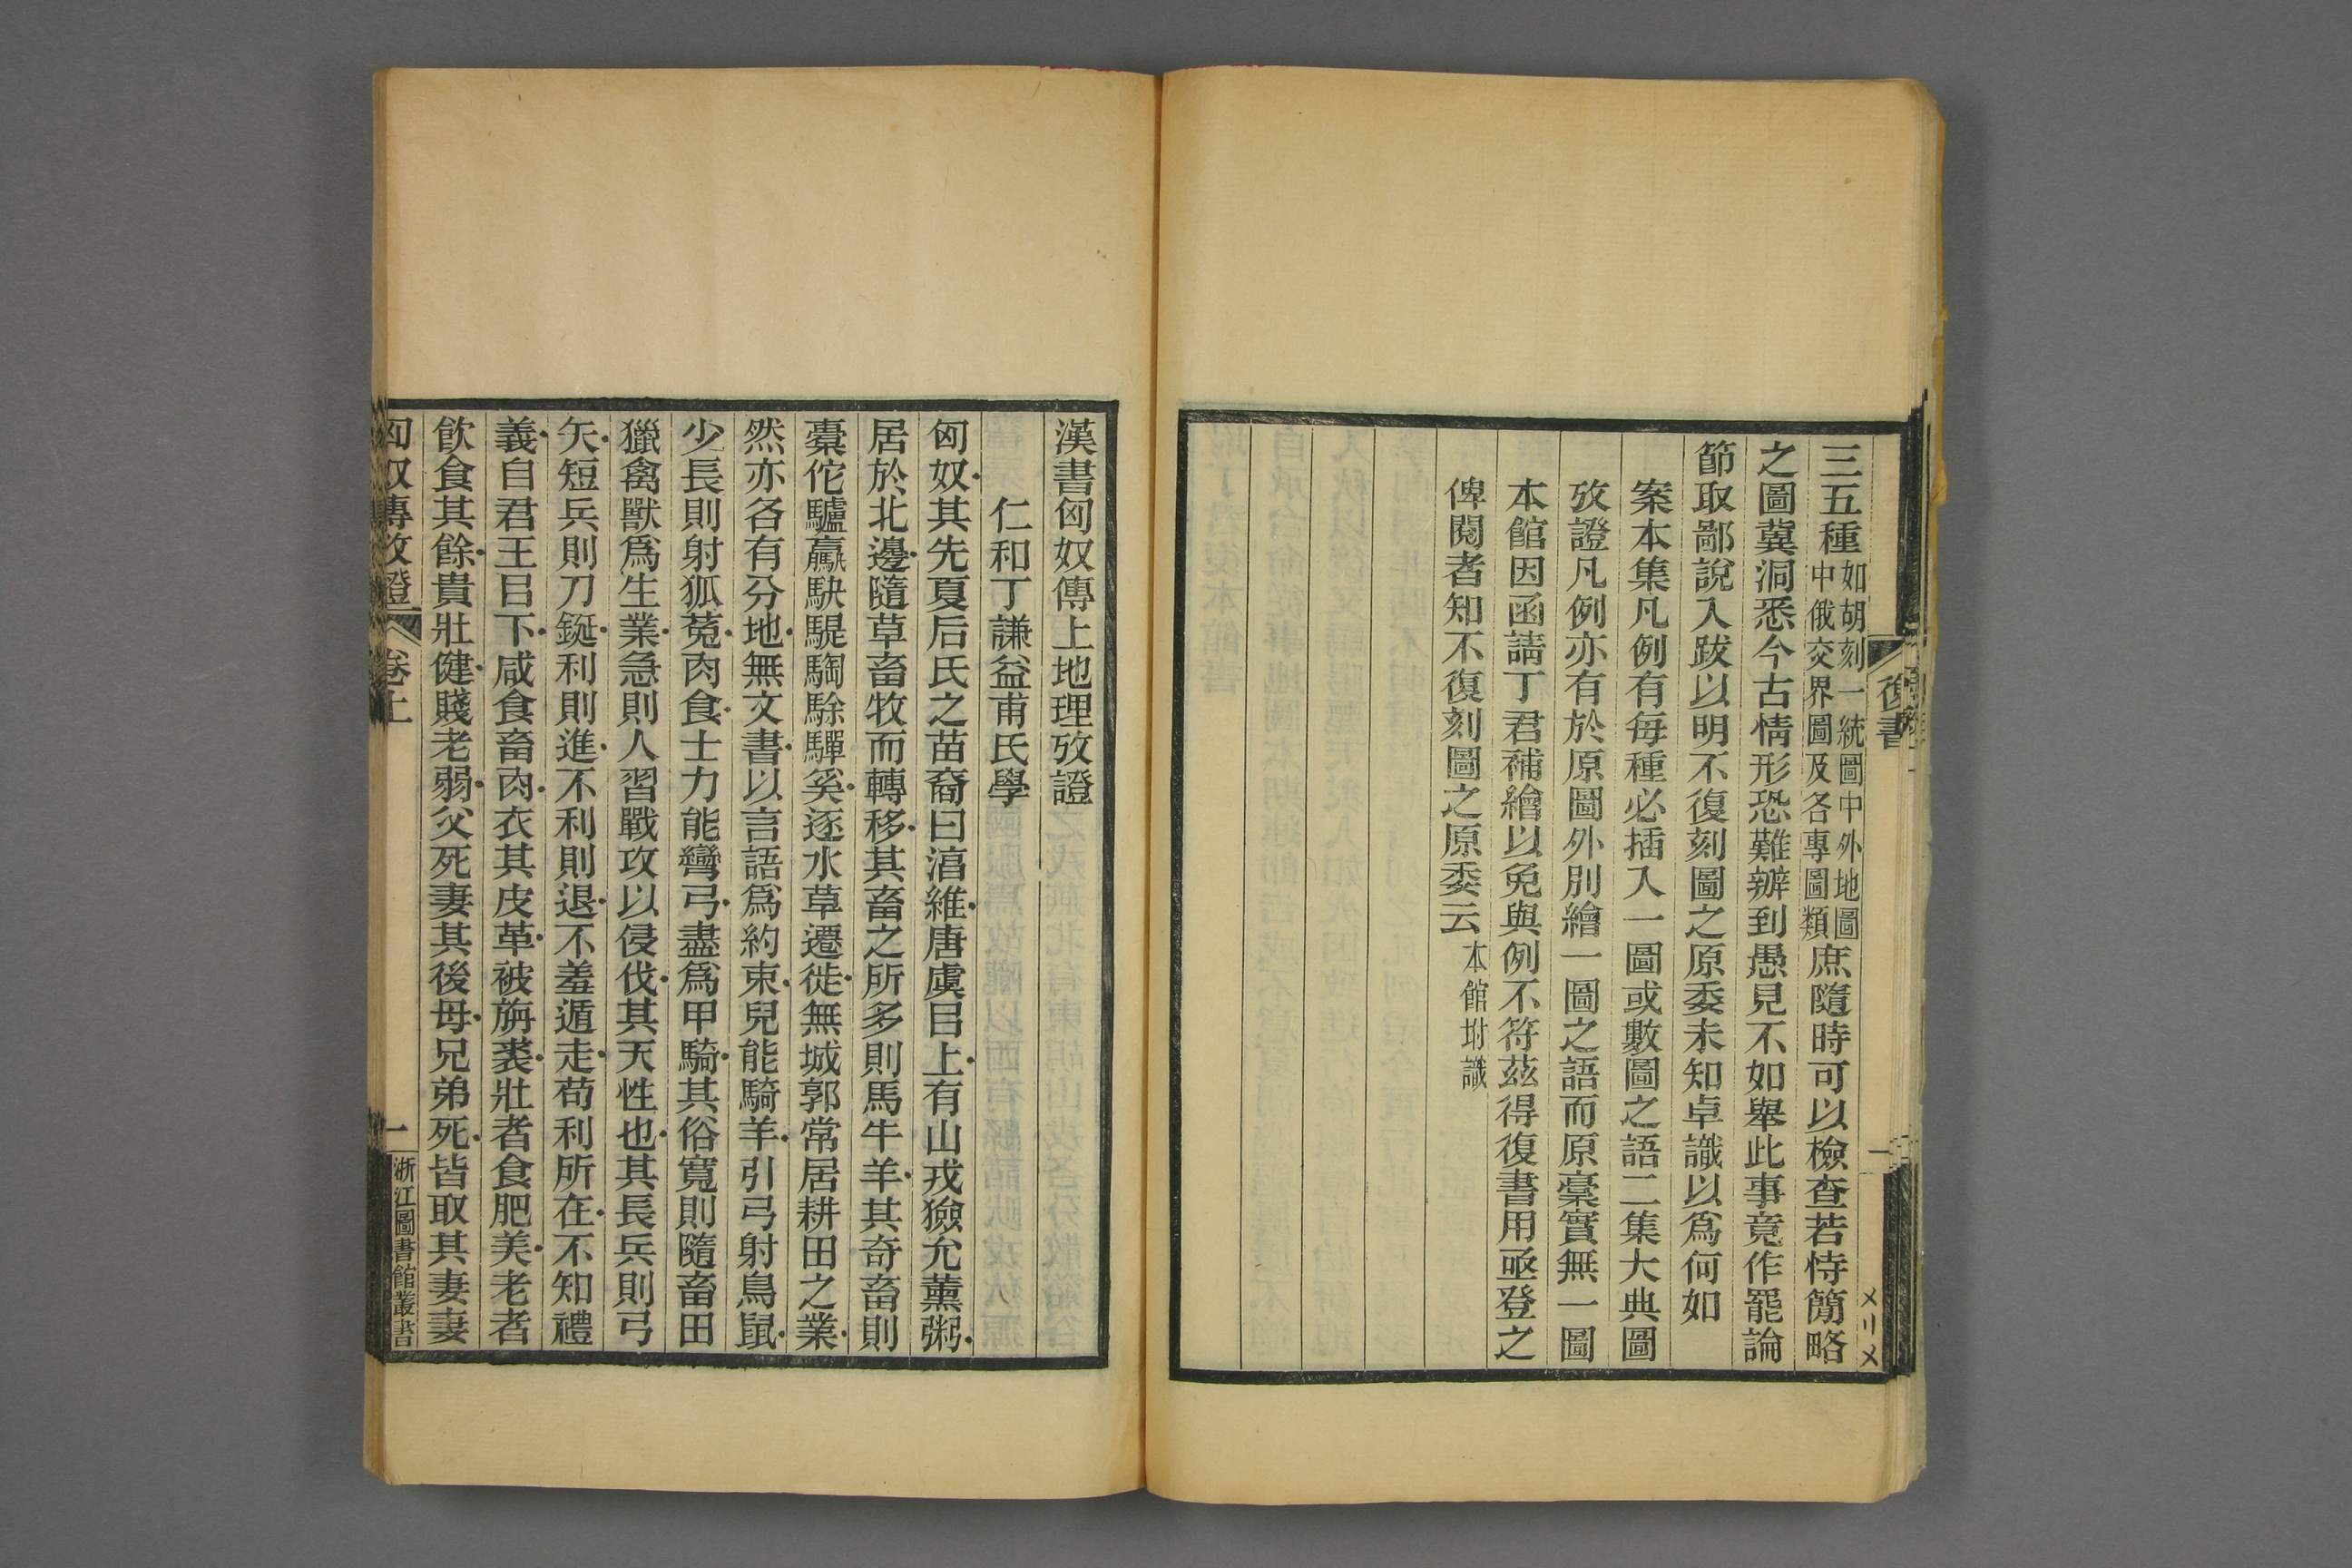 三五種如胡刻一統圖中外地圖中俄交界圖及各專圖類庶隨時可以檢查若恃簡略
之圖冀洞悉今古情形恐難辦到愚見不如舉此事竟作罷論
節取鄙說入跋以明不復刻圖之原委未知卓識以爲何如
案本集凡例有每種必插入一圖或數圖之語二集大典圖
攷證凡例亦有於原圖外別繪一圖之語而原稾實無一圖
本館因函請丁君補繪以免與例不符茲得復書用亟登之
俾閱者知不復刻圖之原委云本館坿識
復書
一
漢書匈奴傳上地理攷證
仁和丁謙益甫氏學
匈奴其先夏后氏之苗裔曰淯維唐虞㠯上有山戎獫允薰粥
居於北邊隨草畜牧而轉移其畜之所多則馬牛羊其奇畜則
橐佗驢驘駃騠騊駼驒奚逐水草遷徙無城郭常居耕田之業
然亦各有分地無文書以言語爲約束兒能騎羊引弓射鳥鼠
少長則射狐菟肉食士力能彎弓盡爲甲騎其俗寬則隨畜田
獵禽獸爲生業急則人習戰攻以侵伐其天性也其長兵則弓
矢短兵則刀鋋利則進不利則退不羞遁走苟利所在不知禮
義自君王㠯下咸食畜肉衣其皮革被旃裘壯者食肥美老者
飲食其餘貴壯健賤老弱父死妻其後母兄弟死皆取其妻妻
匈奴傳攷證
卷上
一
浙江圖書館叢書